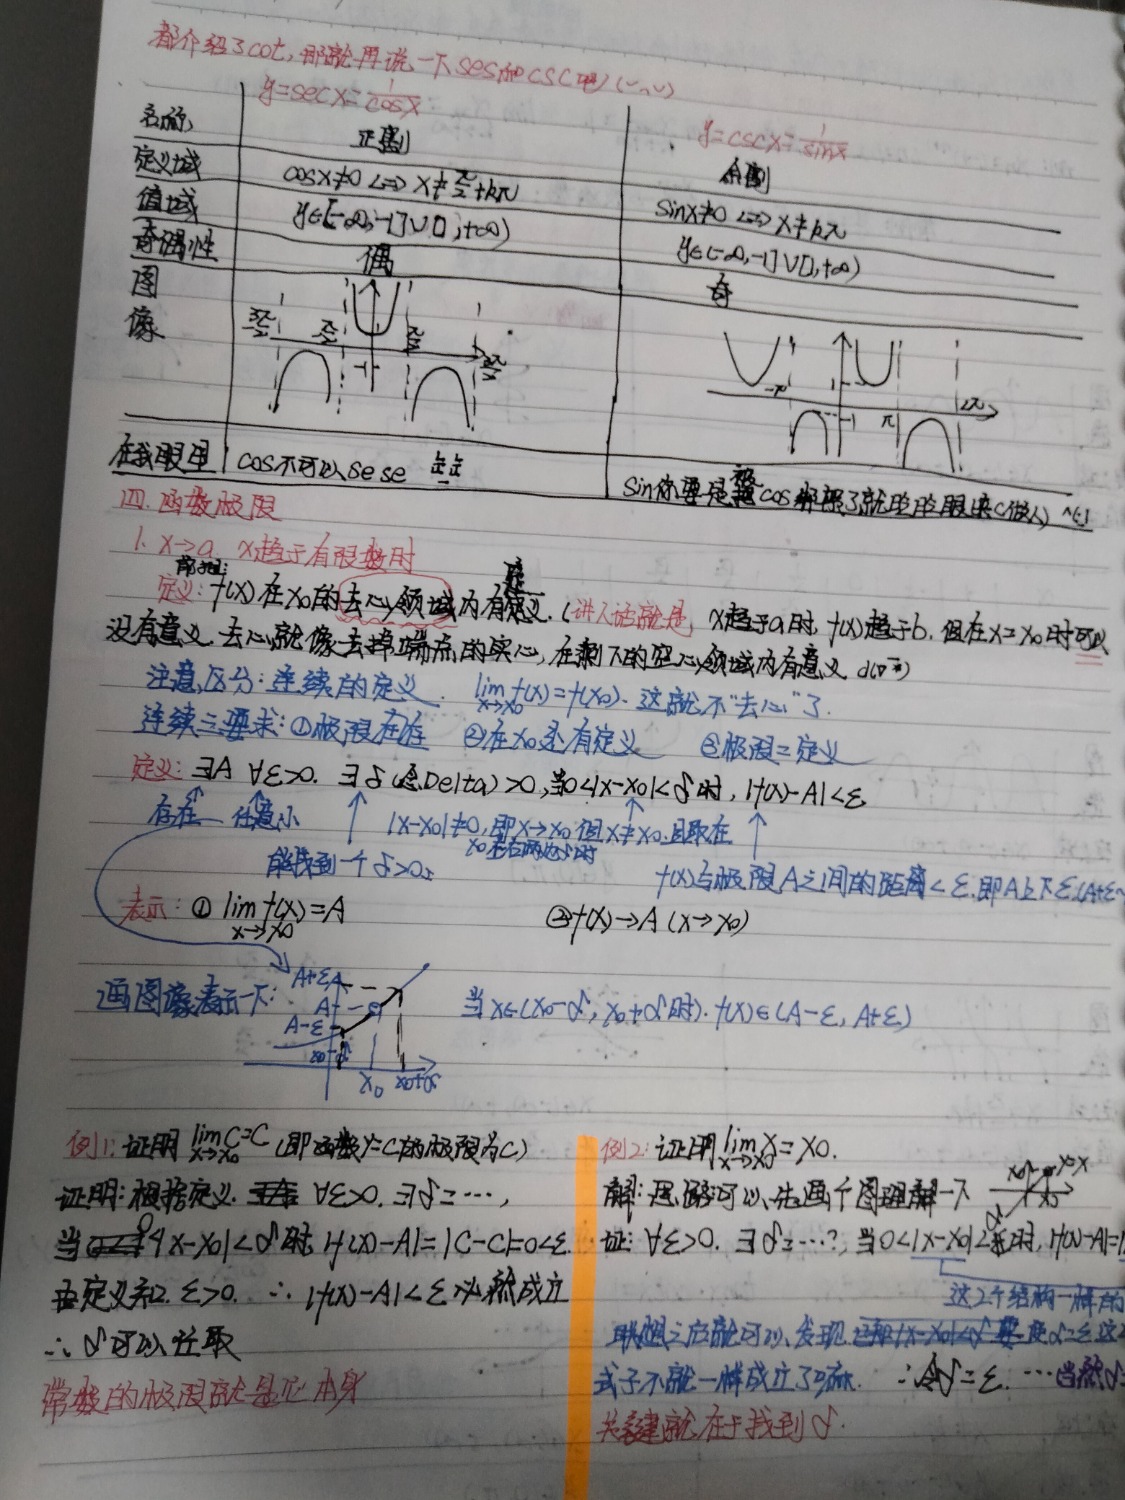 都介绍了cot,那就再说一下ses和csc吧(~ω~)
y=secx=1/cosx
y=cscx=1/sinx
名称 正割 余割
定义域 cosx≠0<=>x≠π/2+kπ sinx≠0<=>x≠kπ
值域 y∈[-∞,-1]∪[1,+∞) y∈(-∞,-1]∪[1,+∞)
奇偶性 偶 奇
图像
-1 1 -1
-π π 2π
在我眼里 cos不可以sese sin你要是
四.函数极限
1. x→a x趋于有限数时
定义: f(x)在x0的去心领域内有定义.(讲人话就是 x趋于a时,f(x)趋于b.但在x=x0时可以
没有意义.去心就像去掉端点的实心,在剩下的空心领域内有意义
注意区分:连续的定义. lim x→x0 f(x)=f(x0).这就不“去心”了.
连续三要求:①极限存在 ②在x0处有定义 ③极限=定义
定义:∃A ∀ε>0. ∃δ(念Delta)>0,当0<|x-x0|<δ时,|f(x)-A|<ε
存在 任意小 |x-x0|≠0,即x→x0.但x≠x0.且取在
x0左右两边δ时
能找到一个δ>0. f(x)与极限A之间的距离<ε.即A上下ε.(A+ε
表示:① lim x→x0 f(x)=A ②f(x)→A(x→x0)
画图像表示一下:
A+ε
A
A-ε
x0 x0+δ
当x∈(x0-δ,x0+δ时).f(x)∈(A-ε,A+ε)
例1:证明 lim x→x0 C=C(即函数y=C的极限为C)
证明:根据定义. ∀ε>0.∃δ=…,
当0<|x-x0|<δ时,|f(x)-A|=|C-C|=0<ε.
定义知 ε>0. ∴|f(x)-A|<ε必然成立
∴δ可以任取
常数的极限就是它本身
例2:证明 lim x→x0 x=x0.
解:思路可以先画个图理解一下
证:∀ε>0.∃δ=…?,当0<|x-x0|<δ时,|f(x)-A|=
这2个结构一样的
联想之后就可以发现 使δ=ε这2
式子不就一样成立了嘛. ∴令δ=ε.…当然δ
关键就在于找到δ.